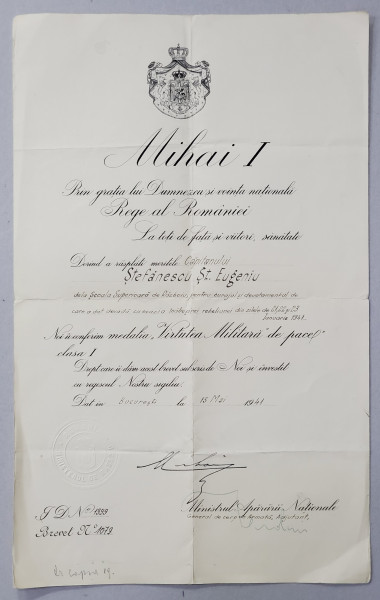 Mihai I
Prin grația lui Dumnezeu si voința națională
Rege al României
La toți de față si viitori, sănătate
Dorind a răsplăti meritele Căpitanului
Ștefănescu Șt. Eugeniu
dela Școala Superioară de Răsboiu, pentru curajul și devotamentul de
care a dat dovadă cu ocazia rebeliunei din zilele de 21,22 și 23
Ianuarie 1941.
Noi îi conferim medalia „Virtutea Militară" de pace
clasa I
Drept care îi dăm acest brevet subscris de Noi si investit
cu regescul Nostru sigiliu;
Dat in București la 15 Mai 1941
Mihai
I.D. No 1559
Brevet No 1079
Ministrul Apărării Naționale
General de corp de Armată, Adjutant,